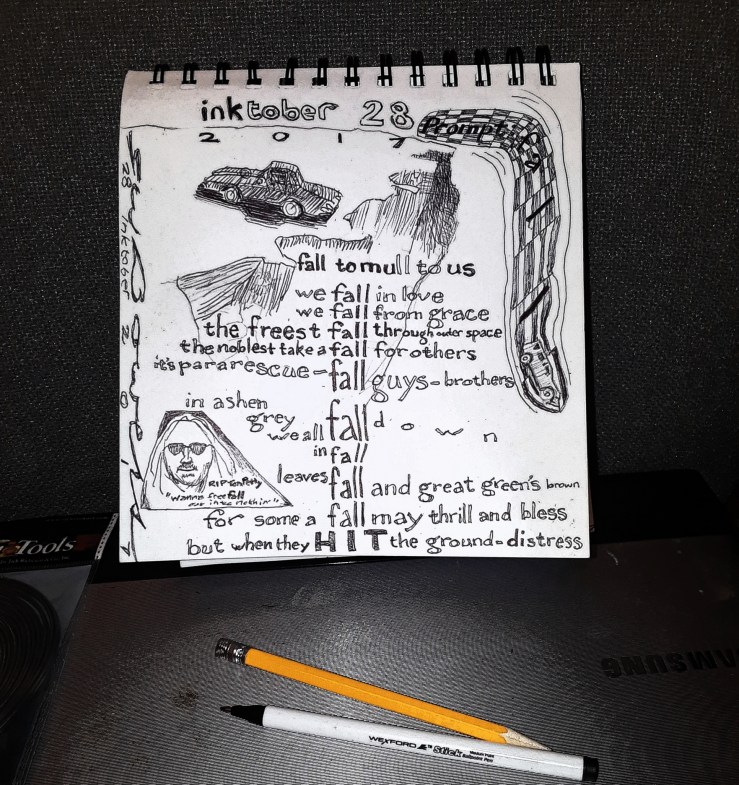 inktober 28
2 0 1 7
Prompt:
fall to mull to us
we fall in love
we fall from grace
the freest fall through outer space
the noblest take a fall for others
it's pararescue-fall guys-brothers
in ashen
grey
we all fall d o w n
in fall
leaves fall and great green's brown
for some a fall may thrill and bless
but when they HIT the ground-distress
RIP Tom Petty
"wanna free fall
out into nothin"
28 inktober 2017
Tools
SAMSUNG
WEXFORD Stick Medium Point
Ballpoint Pen